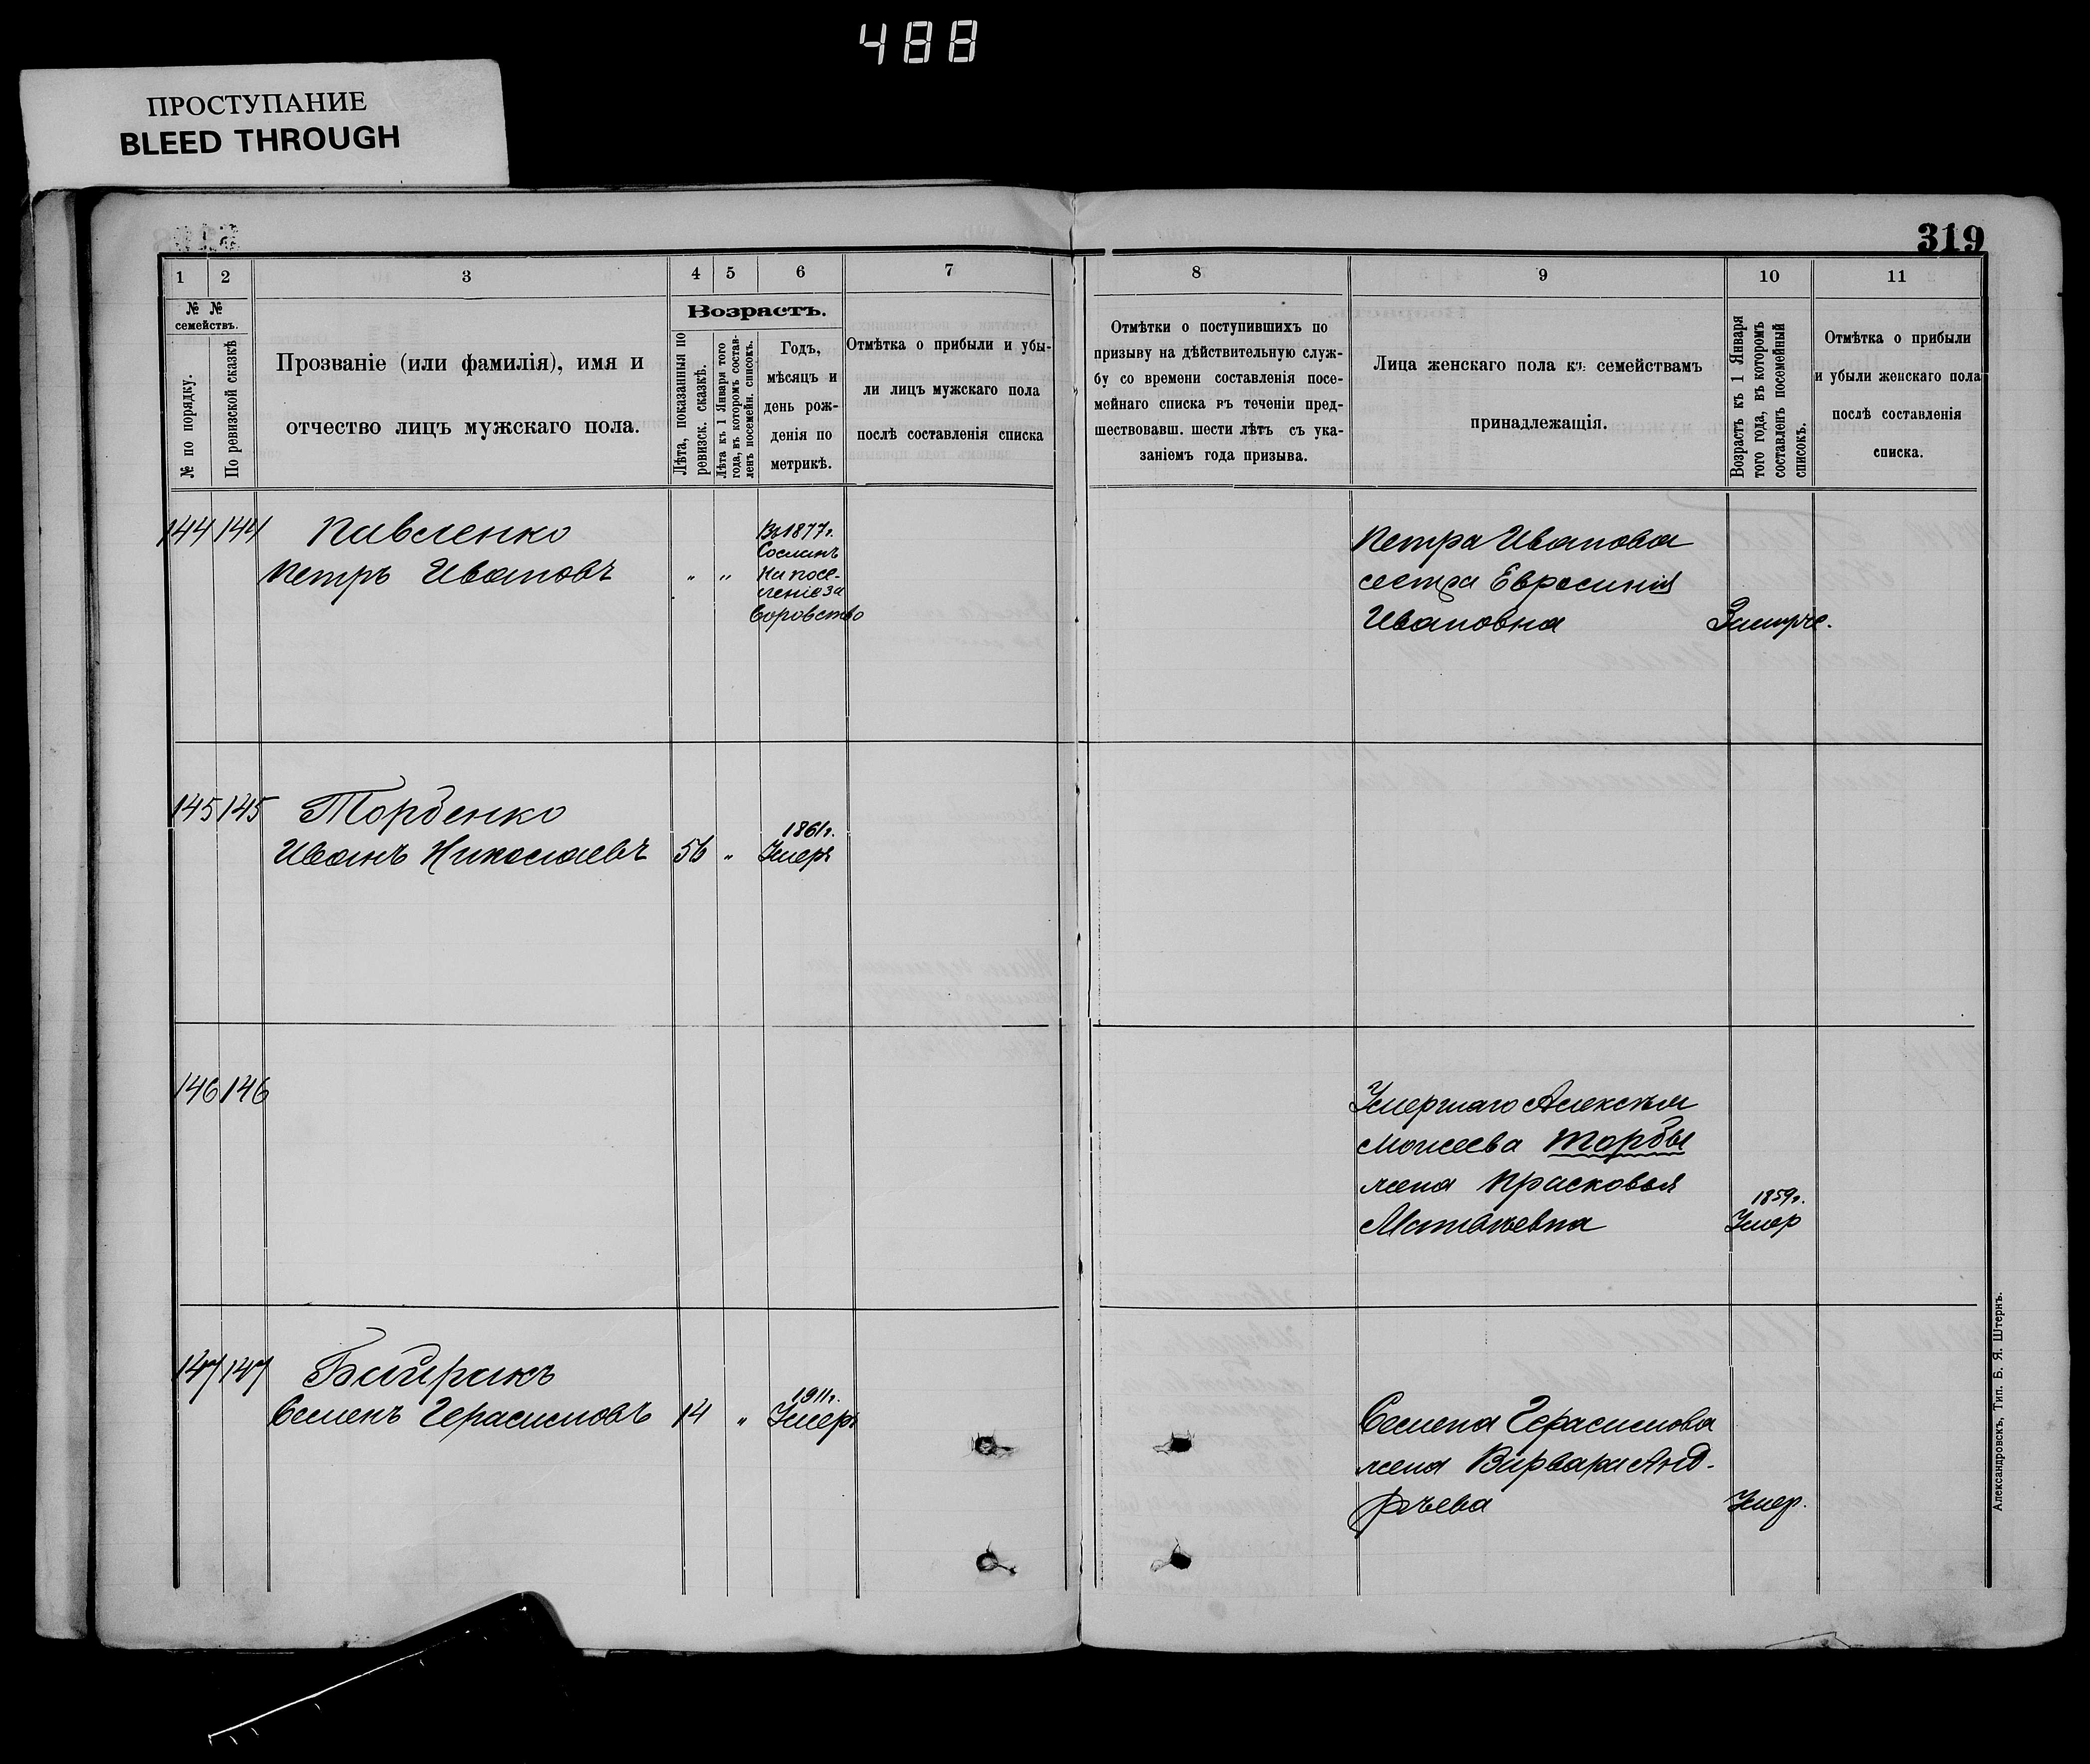 488
ПРОСТУПАНИЕ
BLEED THROUGH
319
1 2 3 4 5 6 7 8 9 10 11
№ №
семействъ.
№ по порядку.
По ревизской сказкѣ
Прозваніе (или фамилія), имя и
отчество лицъ мужскаго пола.
Возрастъ.
Лѣта, показанныя по
ревизск. сказкѣ.
Лѣта къ 1 Января того
года, въ которомъ состав-
ленъ посемейн. списокъ.
Годъ,
мѣсяцъ и
день рож-
денія по
метрикѣ.
Отмѣтка о прибыли и убы-
ли лицъ мужскаго пола
послѣ составленія списка
Отмѣтки о поступившихъ по
призыву на дѣйствительную служ-
бу со времени составленія посе-
мейнаго списка въ теченіи пред-
шествовавш. шести лѣтъ съ ука-
заніемъ года призыва.
Лица женскаго пола къ семействамъ
принадлежащія.
Возрастъ къ 1 Января
того года, въ которомъ
составленъ посемейный
списокъ.
Отмѣтка о прибыли
и убыли женскаго пола
послѣ составленія
списка.
144 144 Павленко
Петръ Ивановъ " "
Въ 1877г.
Сосланъ
на посе-
леніе за
воровство
Петра Иванова
сестра Евросинія
Ивановна
145 145 Торбенко
Иванъ Николаевъ 56 "
1861г.
Умеръ
146 146
Умершаго Алексѣя
Моисеева Торбы
жена Прасковья
Матвѣевна
1859г.
Умер
147 147 Байракъ
Семенъ Герасимовъ 14 "
1911г.
Умеръ
Семена Герасимова
жена Варвара Анд-
рѣева Умер.
Александровскъ, Тип. Б. Я. Штернъ.